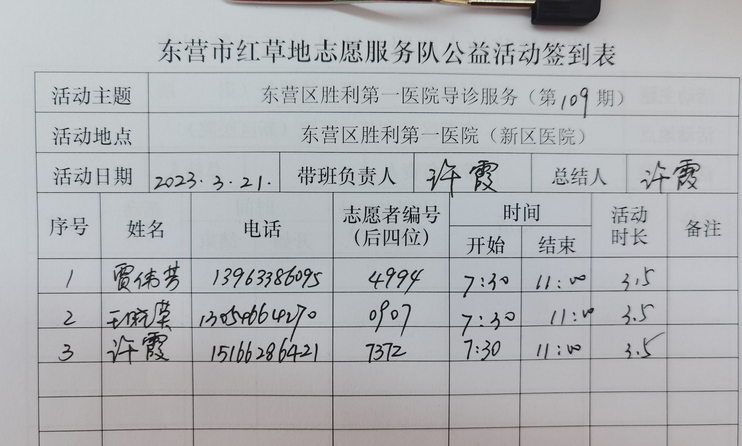 东营市红草地志愿服务队公益活动签到表
活动主题 东营区胜利第一医院导诊服务（第109期）
活动地点 东营区胜利第一医院（新区医院）
活动日期 2023.3.21. 带班负责人 许霞 总结人 许霞
序号 姓名 电话 志愿者编号（后四位） 时间 开始 结束 活动时长 备注
1 贾伟芳 13963386095 4994 7:30 11:00 3.5
2 13054664270 0907 7:30 11:00 3.5
3 许霞 15166286421 7372 7:30 11:00 3.5